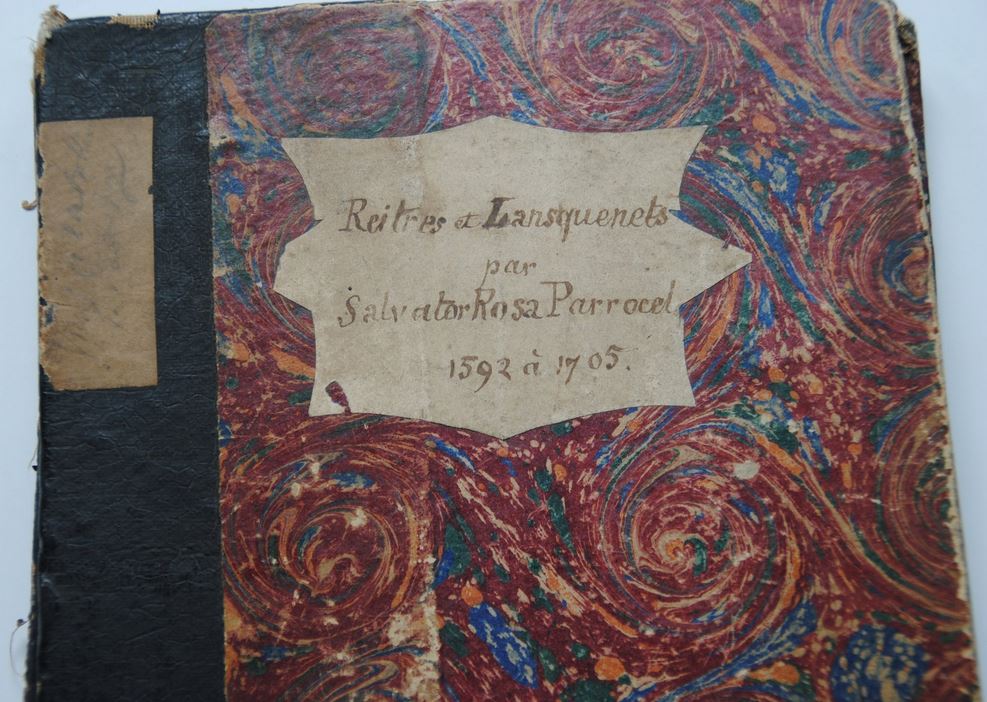 Reitres et Lansquenets
par
Salvator Rosa Parrocel
1592 à 1705.